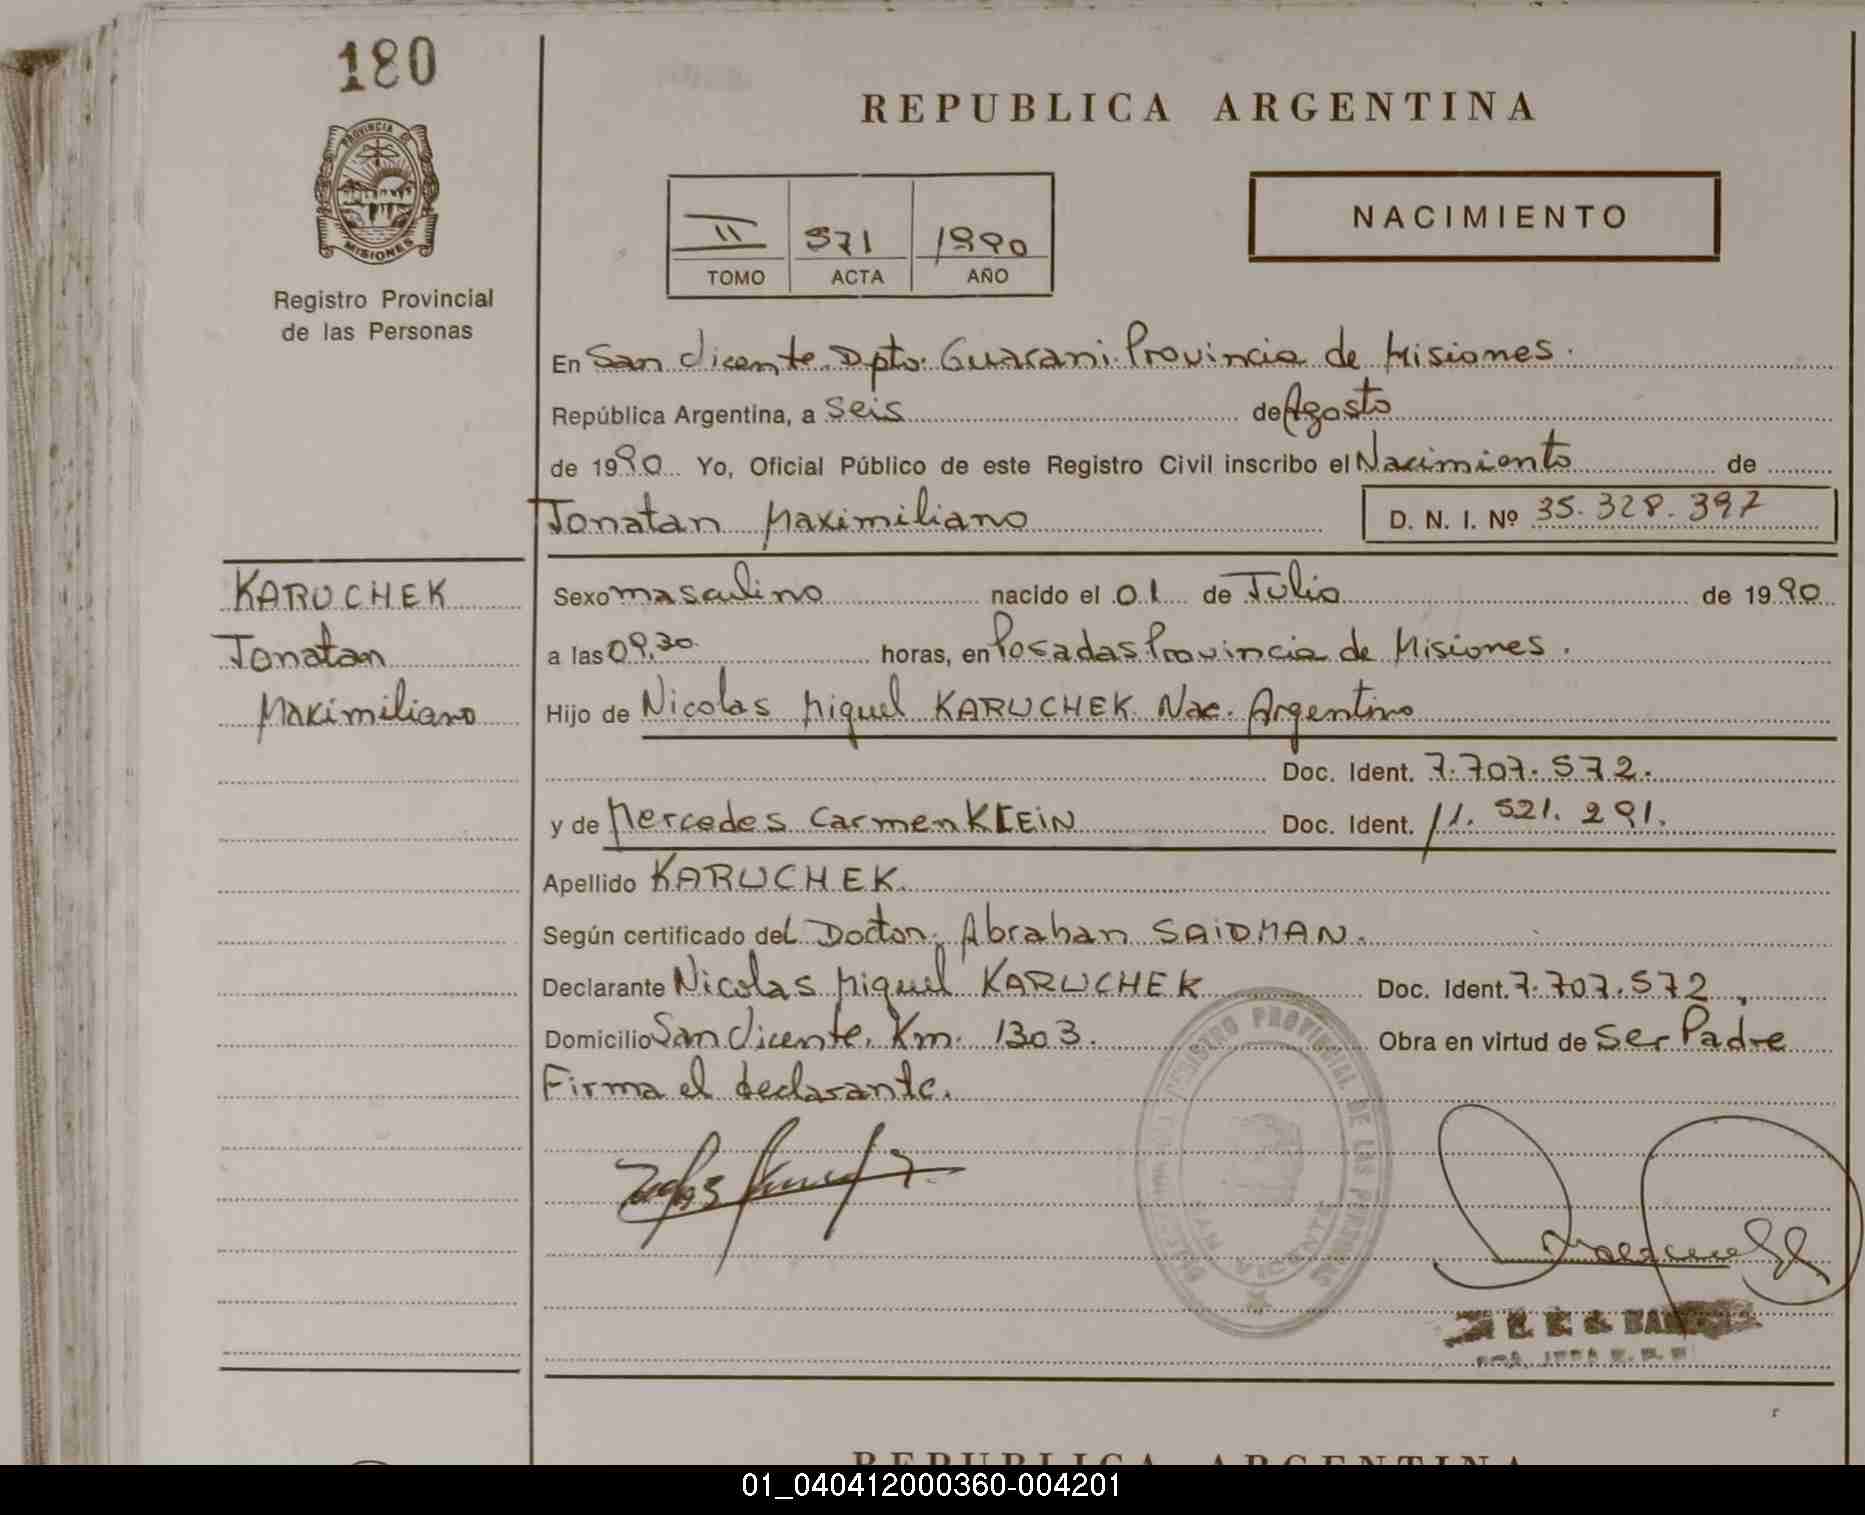 180
PROVINCIA DE
MISIONES
Registro Provincial
de las Personas
REPUBLICA ARGENTINA
II 571 1990
TOMO ACTA AÑO
NACIMIENTO
En San Vicente. Dpto. Guarani. Provincia de Misiones.
República Argentina, a Seis de Agosto
de 1990 Yo, Oficial Público de este Registro Civil inscribo el Nacimiento de
Jonatan Maximiliano D. N. I. Nº 35.328.397
KARUCHEK
Jonatan
Maximiliano
Sexo masculino nacido el 01 de Julio de 1990
a las 09,30 horas, en Posadas Provincia de Misiones.
Hijo de Nicolas Miguel KARUCHEK Nac. Argentino
Doc. Ident. 7.707.572.
y de Mercedes Carmen KLEiN Doc. Ident. 11.521.291.
Apellido KARUCHEK.
Según certificado del Doctor, Abrahan SAiDMAN.
Declarante Nicolas Miguel KARUCHEK Doc. Ident. 7.707.572,
Domicilio San Vicente, Km. 1303. Obra en virtud de Ser Padre
Firma el declarante.
REGISTRO PROVINCIAL DE LAS PERSONAS
SAN VICENTE
REPUBLICA ARGENTINA
01_040412000360-004201